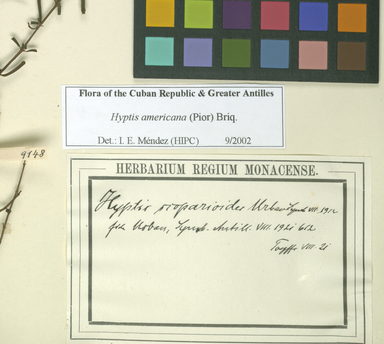 Flora of the Cuban Republic & Greater Antilles
Hyptis americana (Pior) Briq.
Det.: I. E. Méndez (HIPC) 9/2002
9148
HERBARIUM REGIUM MONACENSE.
Hyptis scoparioides Urban Symb. VII. 1912
fide Urban, Symb. Antill. VIII. 1921 612
VIII. 21